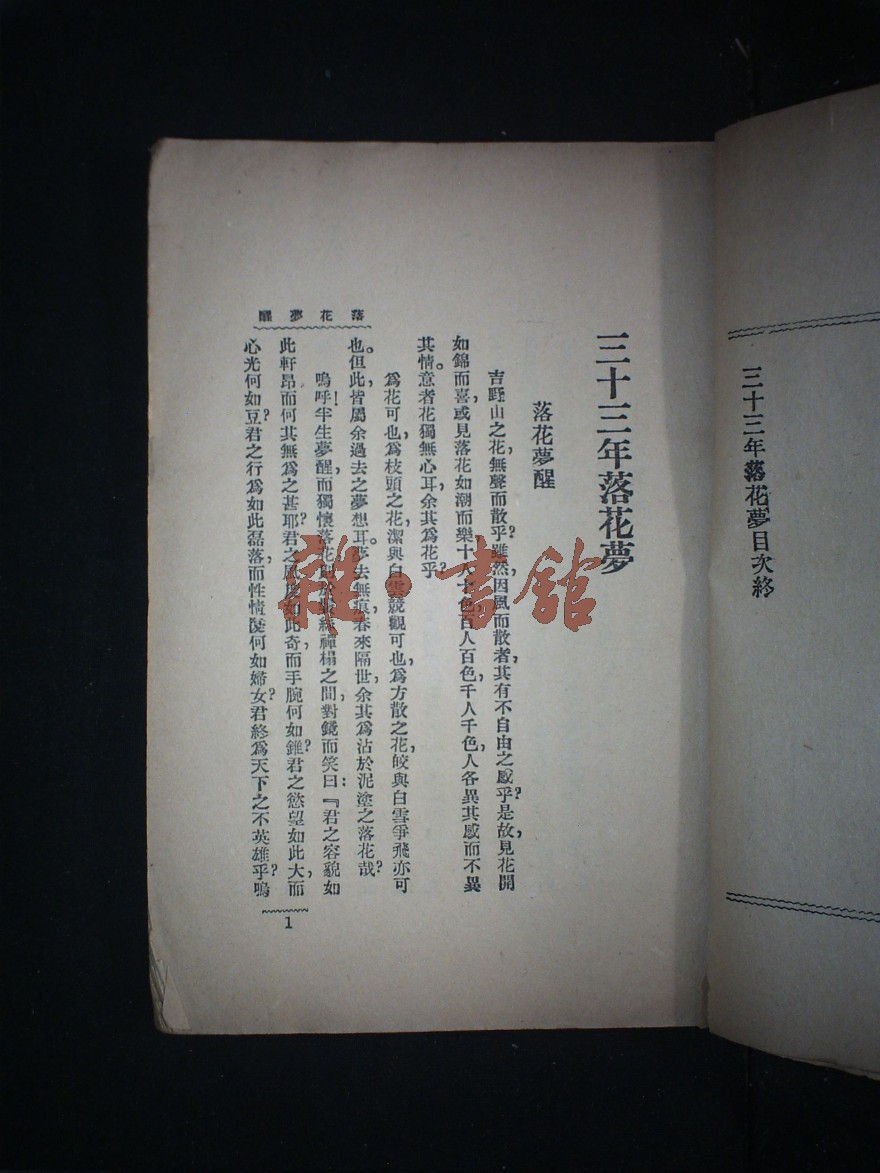 三十三年落花夢目次終
三十三年落花夢
落花夢醒
吉野山之花，無聲而散乎？雖然，因風而散者，其有不自由之感乎？是故，見花開
如錦而喜，或見落花如潮而樂，十人十色，百人百色，千人千色，人各異其感而不異
其情。意者花獨無心耳，余其爲花乎？
爲花可也，爲枝頭之花，潔與白雲競觀可也，爲方散之花，皎與白雪爭飛亦可
也。但此，皆屬余過去之夢想耳。夢去無痕，春來隔世，余其爲沾於泥塗之落花哉？
嗚呼！半生夢醒，而獨懷落花 禪榻之間，對鏡而笑曰：『君之容貌如
此軒昂，而何其無爲之甚耶？君之風度如此奇，而手腕何如錐？君之慾望如此大，而
心光何如豆？君之行爲如此磊落，而性情 何如婦女？君終爲天下之不英雄乎？嗚
落花夢醒
1
雜·書館